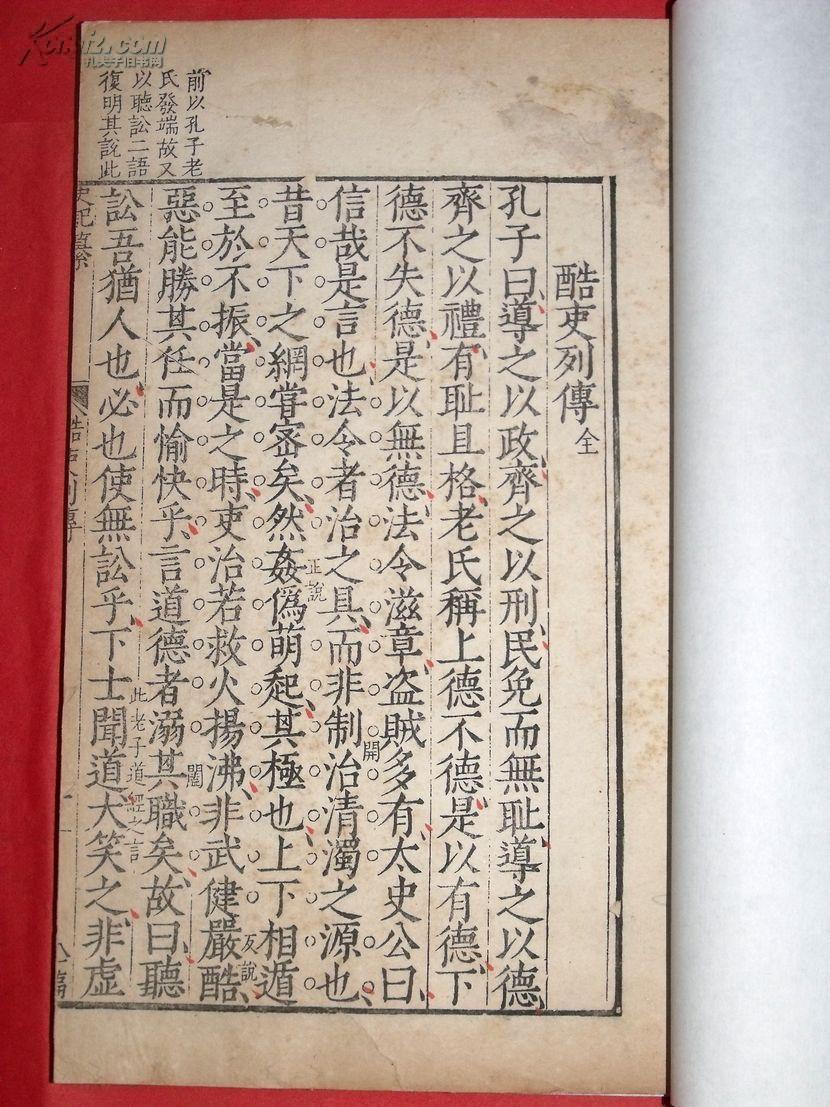 酷吏列傳全
孔子曰導之以政齊之以刑民免而無耻導之以德
齊之以禮有耻且格老氏稱上德不德是以有德下
德不失德是以無德法令滋章盗賊多有太史公曰
信哉是言也法令者治之具而非制治清濁之源也
昔天下之網甞宻矣然姦僞萌起其極也上下相遁
至於不振當是之時吏治若救火揚沸非武健嚴酷
惡能勝其任而愉快乎言道德者溺其職矣故曰聽
訟吾猶人也必也使無訟乎下士聞道大笑之非虛
前以孔子老
氏發端故又
以聽訟二語
復明其說此
開
正說
反說
闔
此老子道經之言
酷吏列傳
孔夫子旧书网